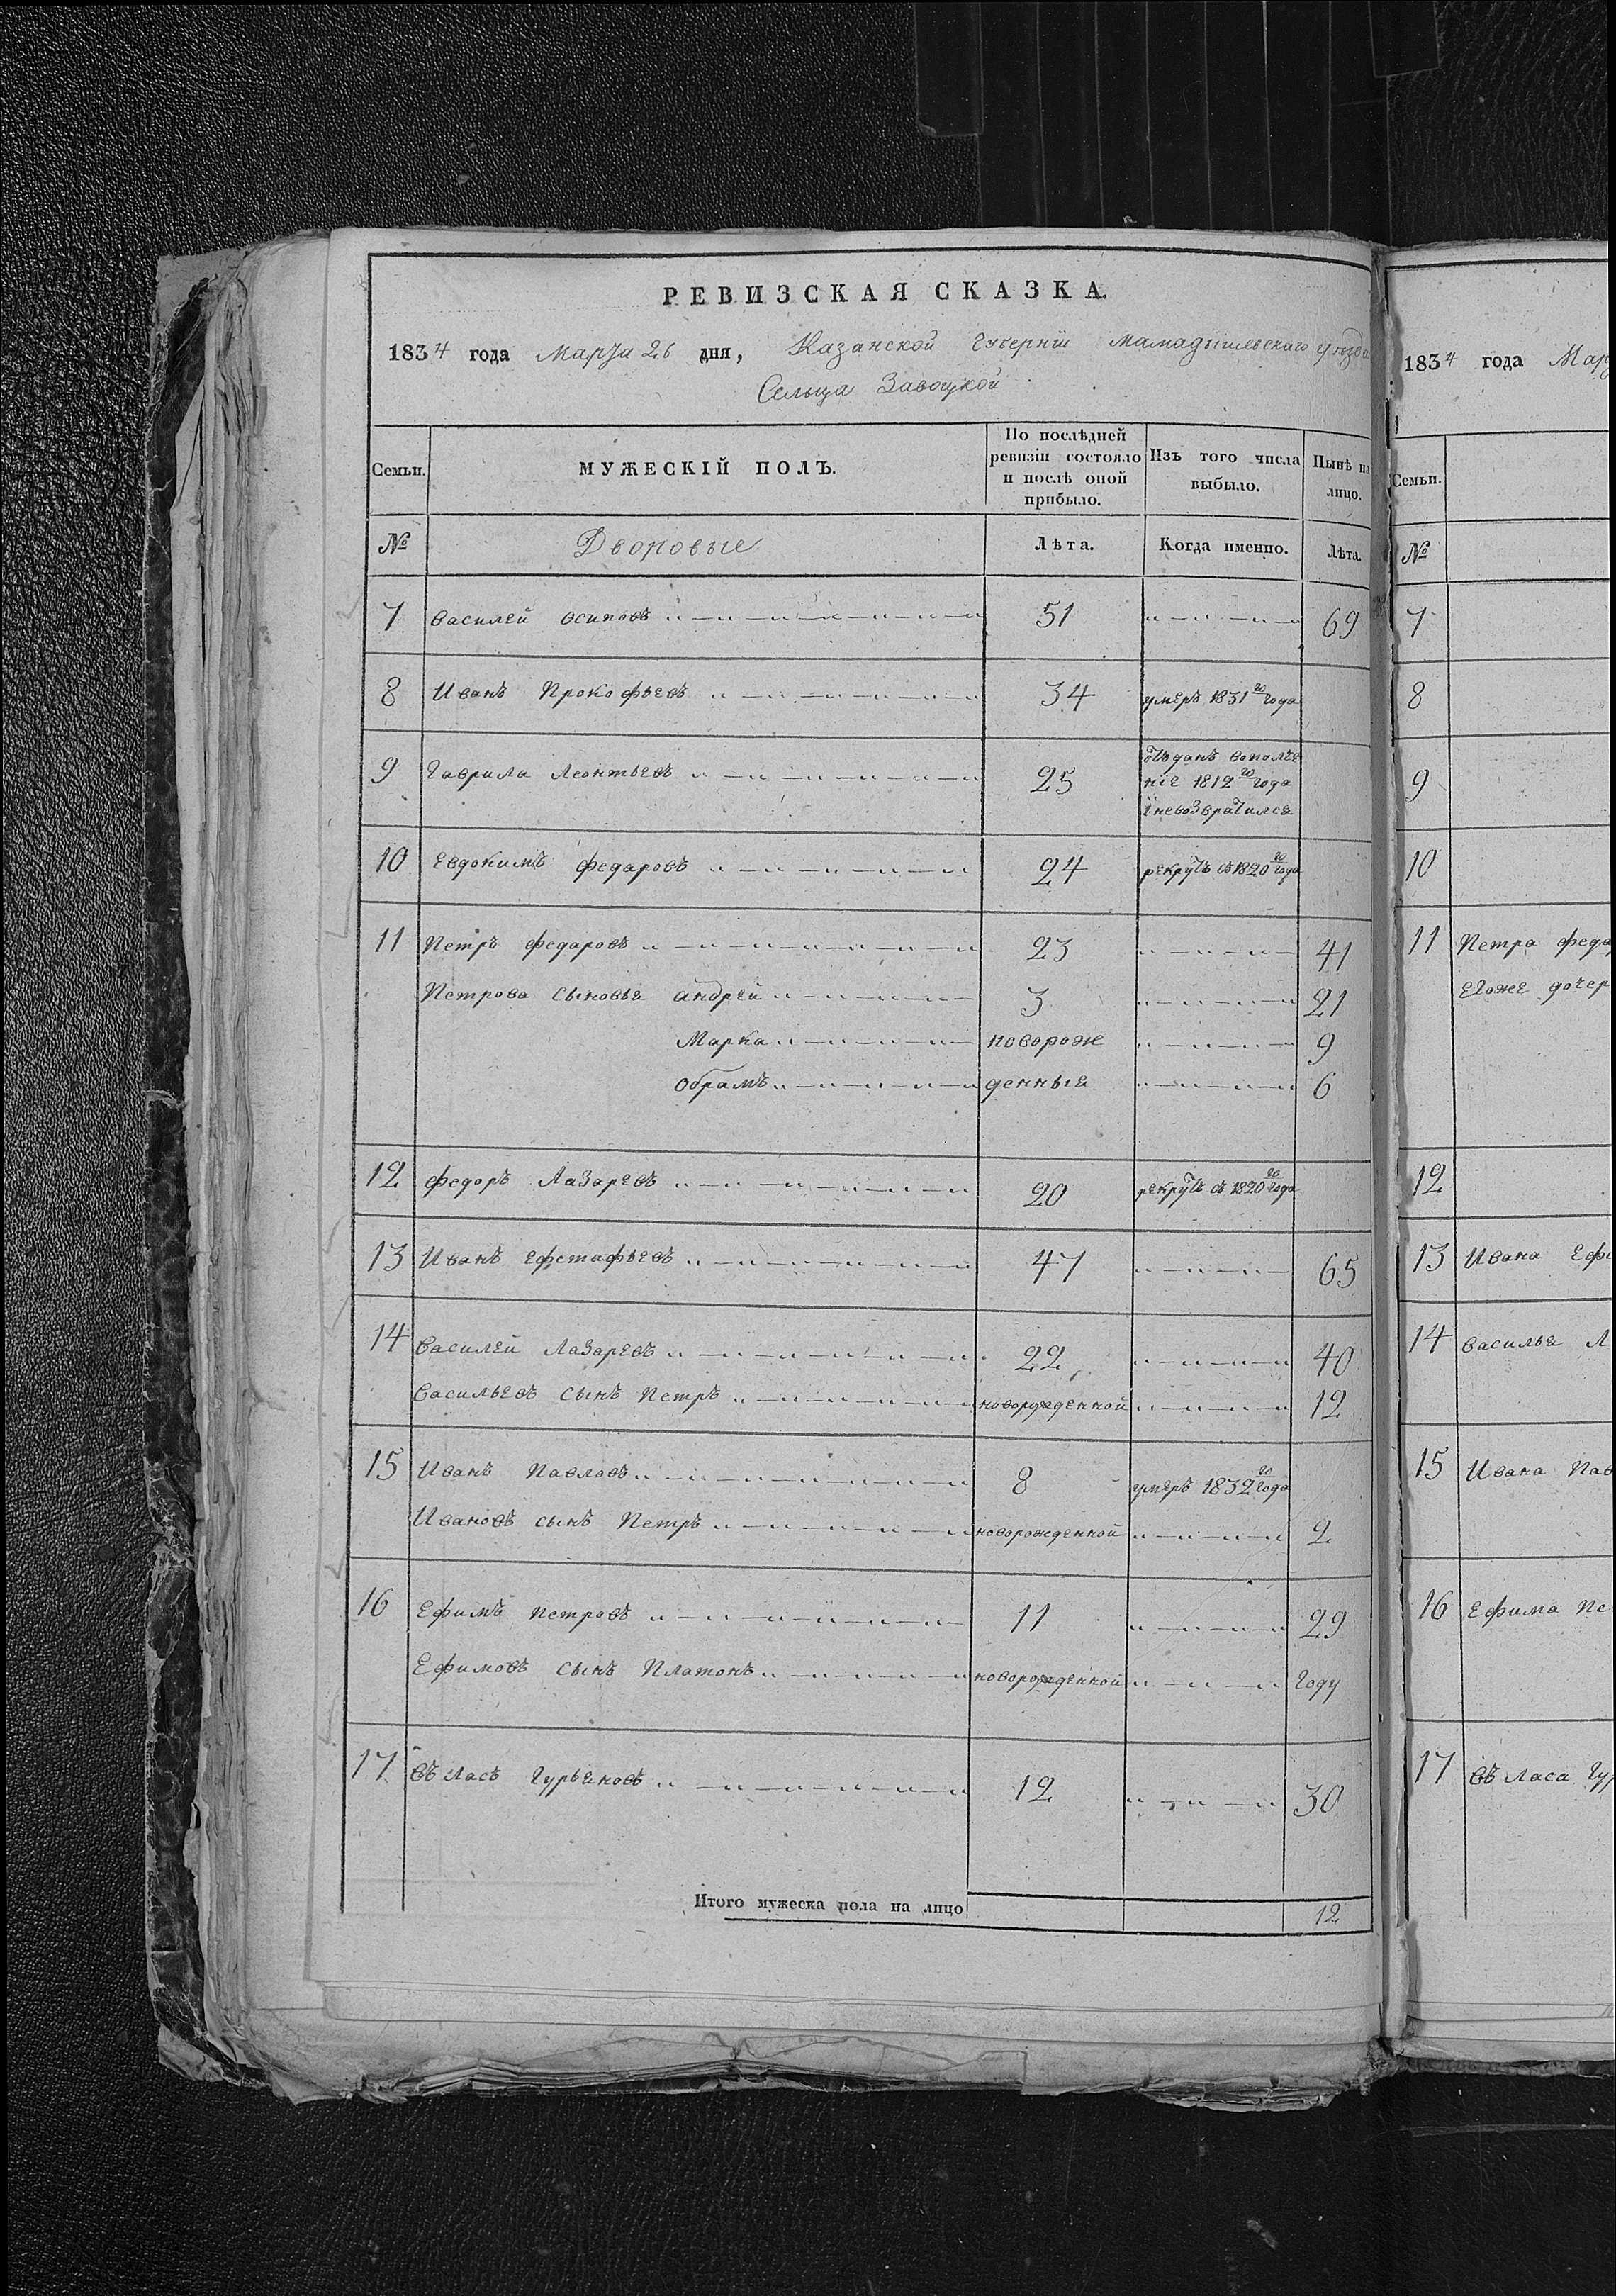 РЕВИЗСКАЯ СКАЗКА.
1834 года Марта 26 дня, Казанской Губернїи Мамадышевскаго уѣзда
Сельца Завоцкой
Семьи. МУЖЕСКІЙ ПОЛЪ. По послѣдней ревизіи состояло и послѣ оной прибыло. Изъ того числа выбыло. Нынѣ на лицо.
№ Дворовые Лѣта. Когда именно. Лѣта.
7 Василей Осиповъ 51 69
8 Иванъ Прокофьевъ 34 умеръ 1831го года
9 Гаврила Леонтьевъ 25 отъданъ вополче
нїе 1812го года
ïневозвратился
10 Евдокимъ Федаровъ 24 рекрутъ съ 1820го года
11 Петръ Федаровъ 23 41
Петрова Сыновья Андрей 3 21
Марка новорож 9
Обрамъ денныя 6
12 Федоръ Лазаревъ 20 рекрутъ съ 1820го года
13 Иванъ Ефстафьевъ 47 65
14 Василей Лазаревъ 22 40
Васильевъ сынъ Петръ новорожденной 12
15 Иванъ Павловъ 8 умеръ 1832го года
Ивановъ сынъ Петръ новорожденной 2
16 Ефимъ Петровъ 11 29
Ефимовъ сынъ Платонъ новорожденной году
17 Въласъ Гурьяновъ 12 30
Итого мужеска пола на лицо 12
1834 года Мар
Семьи.
№
7
8
9
10
11 Петра Феда
Егоже дочер
12
13 Ивана Ефс
14 Василья Л
15 Ивана Пав
16 Ефима Пе
17 Въласа Гур